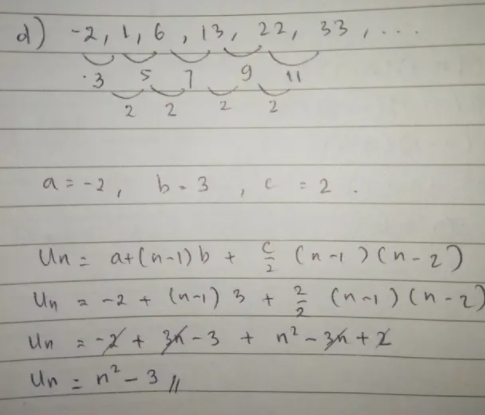 d) -2, 1, 6, 13, 22, 33, ...
3 5 7 9 11
2 2 2 2
a = -2, b = 3, c = 2.
Un = a+(n-1)b + c/2 (n-1)(n-2)
Un = -2 + (n-1) 3 + 2/2 (n-1)(n-2)
Un = -2 + 3n - 3 + n² - 3n + 2
Un = n² - 3 //